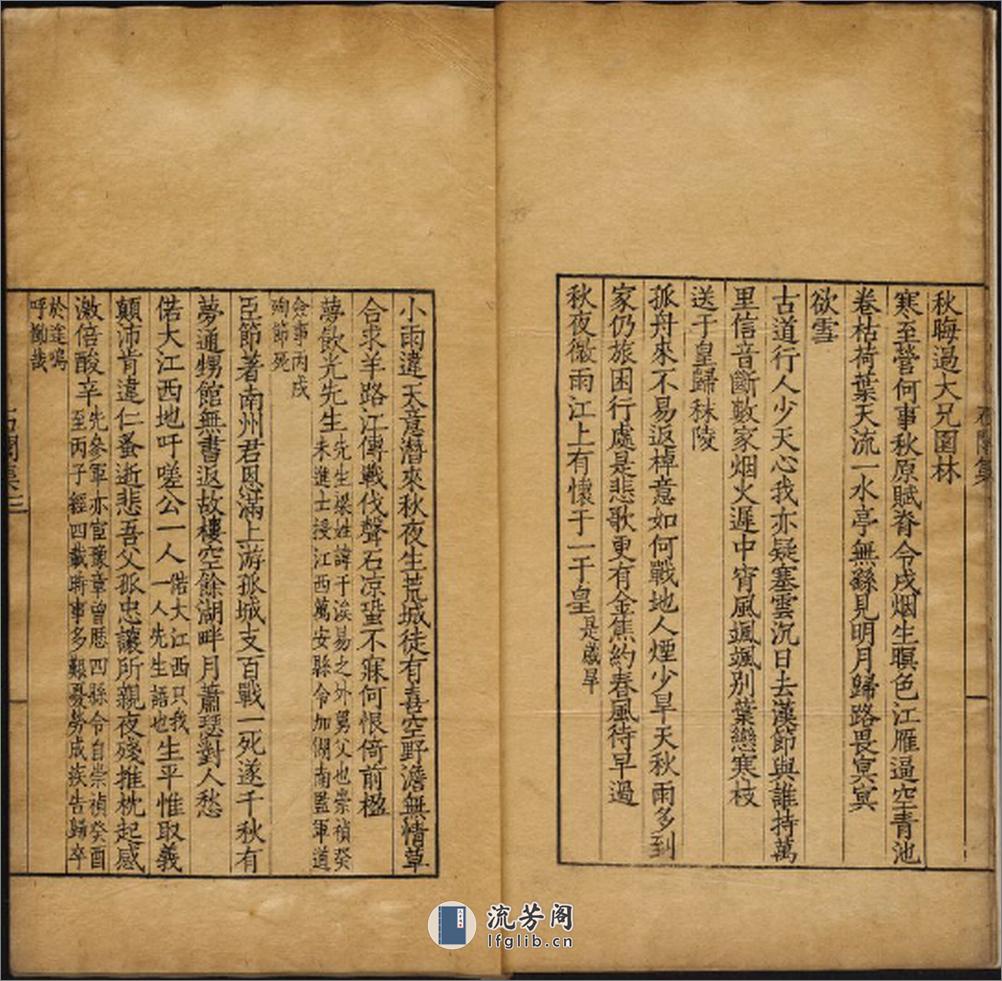 秋晦過大兄園林
寒至營何事秋原賦脊令戍烟生暝色江雁逼空青池
卷枯荷葉天流一水亭無繇見明月歸路畏冥冥
欲雪
古道行人少天心我亦疑塞雲沉日去漢節與誰持萬
里信音斷數家烟火遲中宵風颯颯別葉戀寒枝
送于皇歸秣陵
孤舟來不易返棹意如何戰地人煙少旱天秋雨多到
家仍旅困行處是悲歌更有金焦約春風待早過
秋夜微雨江上有懷于一于皇是歲旱
小雨違天意潛來秋夜生荒城徒有喜空野澹無情草
合求羊路江傳戰伐聲石凉蛩不寐何恨倚前楹
夢歙光先生先生梁姓諱于涘易之外舅父也崇禎癸
未進士授江西萬安縣令加湖南監軍道
僉事丙戌
殉節死
臣節著南州君恩滿上游孤城支百戰一死遂千秋有
夢通甥館無書返故樓空餘湖畔月蕭瑟對人愁
偌大江西地吁嗟公一人偌大江西只我
一人先生語也生平惟取義
顛沛肯違仁蚤逝悲吾父孤忠讓所親夜殘推枕起感
激倍酸辛先參軍亦宦豫章曾歷四縣令自崇禎癸酉
至丙子經四載時事多艱憂勞成疾告歸卒
於途嗚
呼慟哉
流芳阁
lfglib.cn